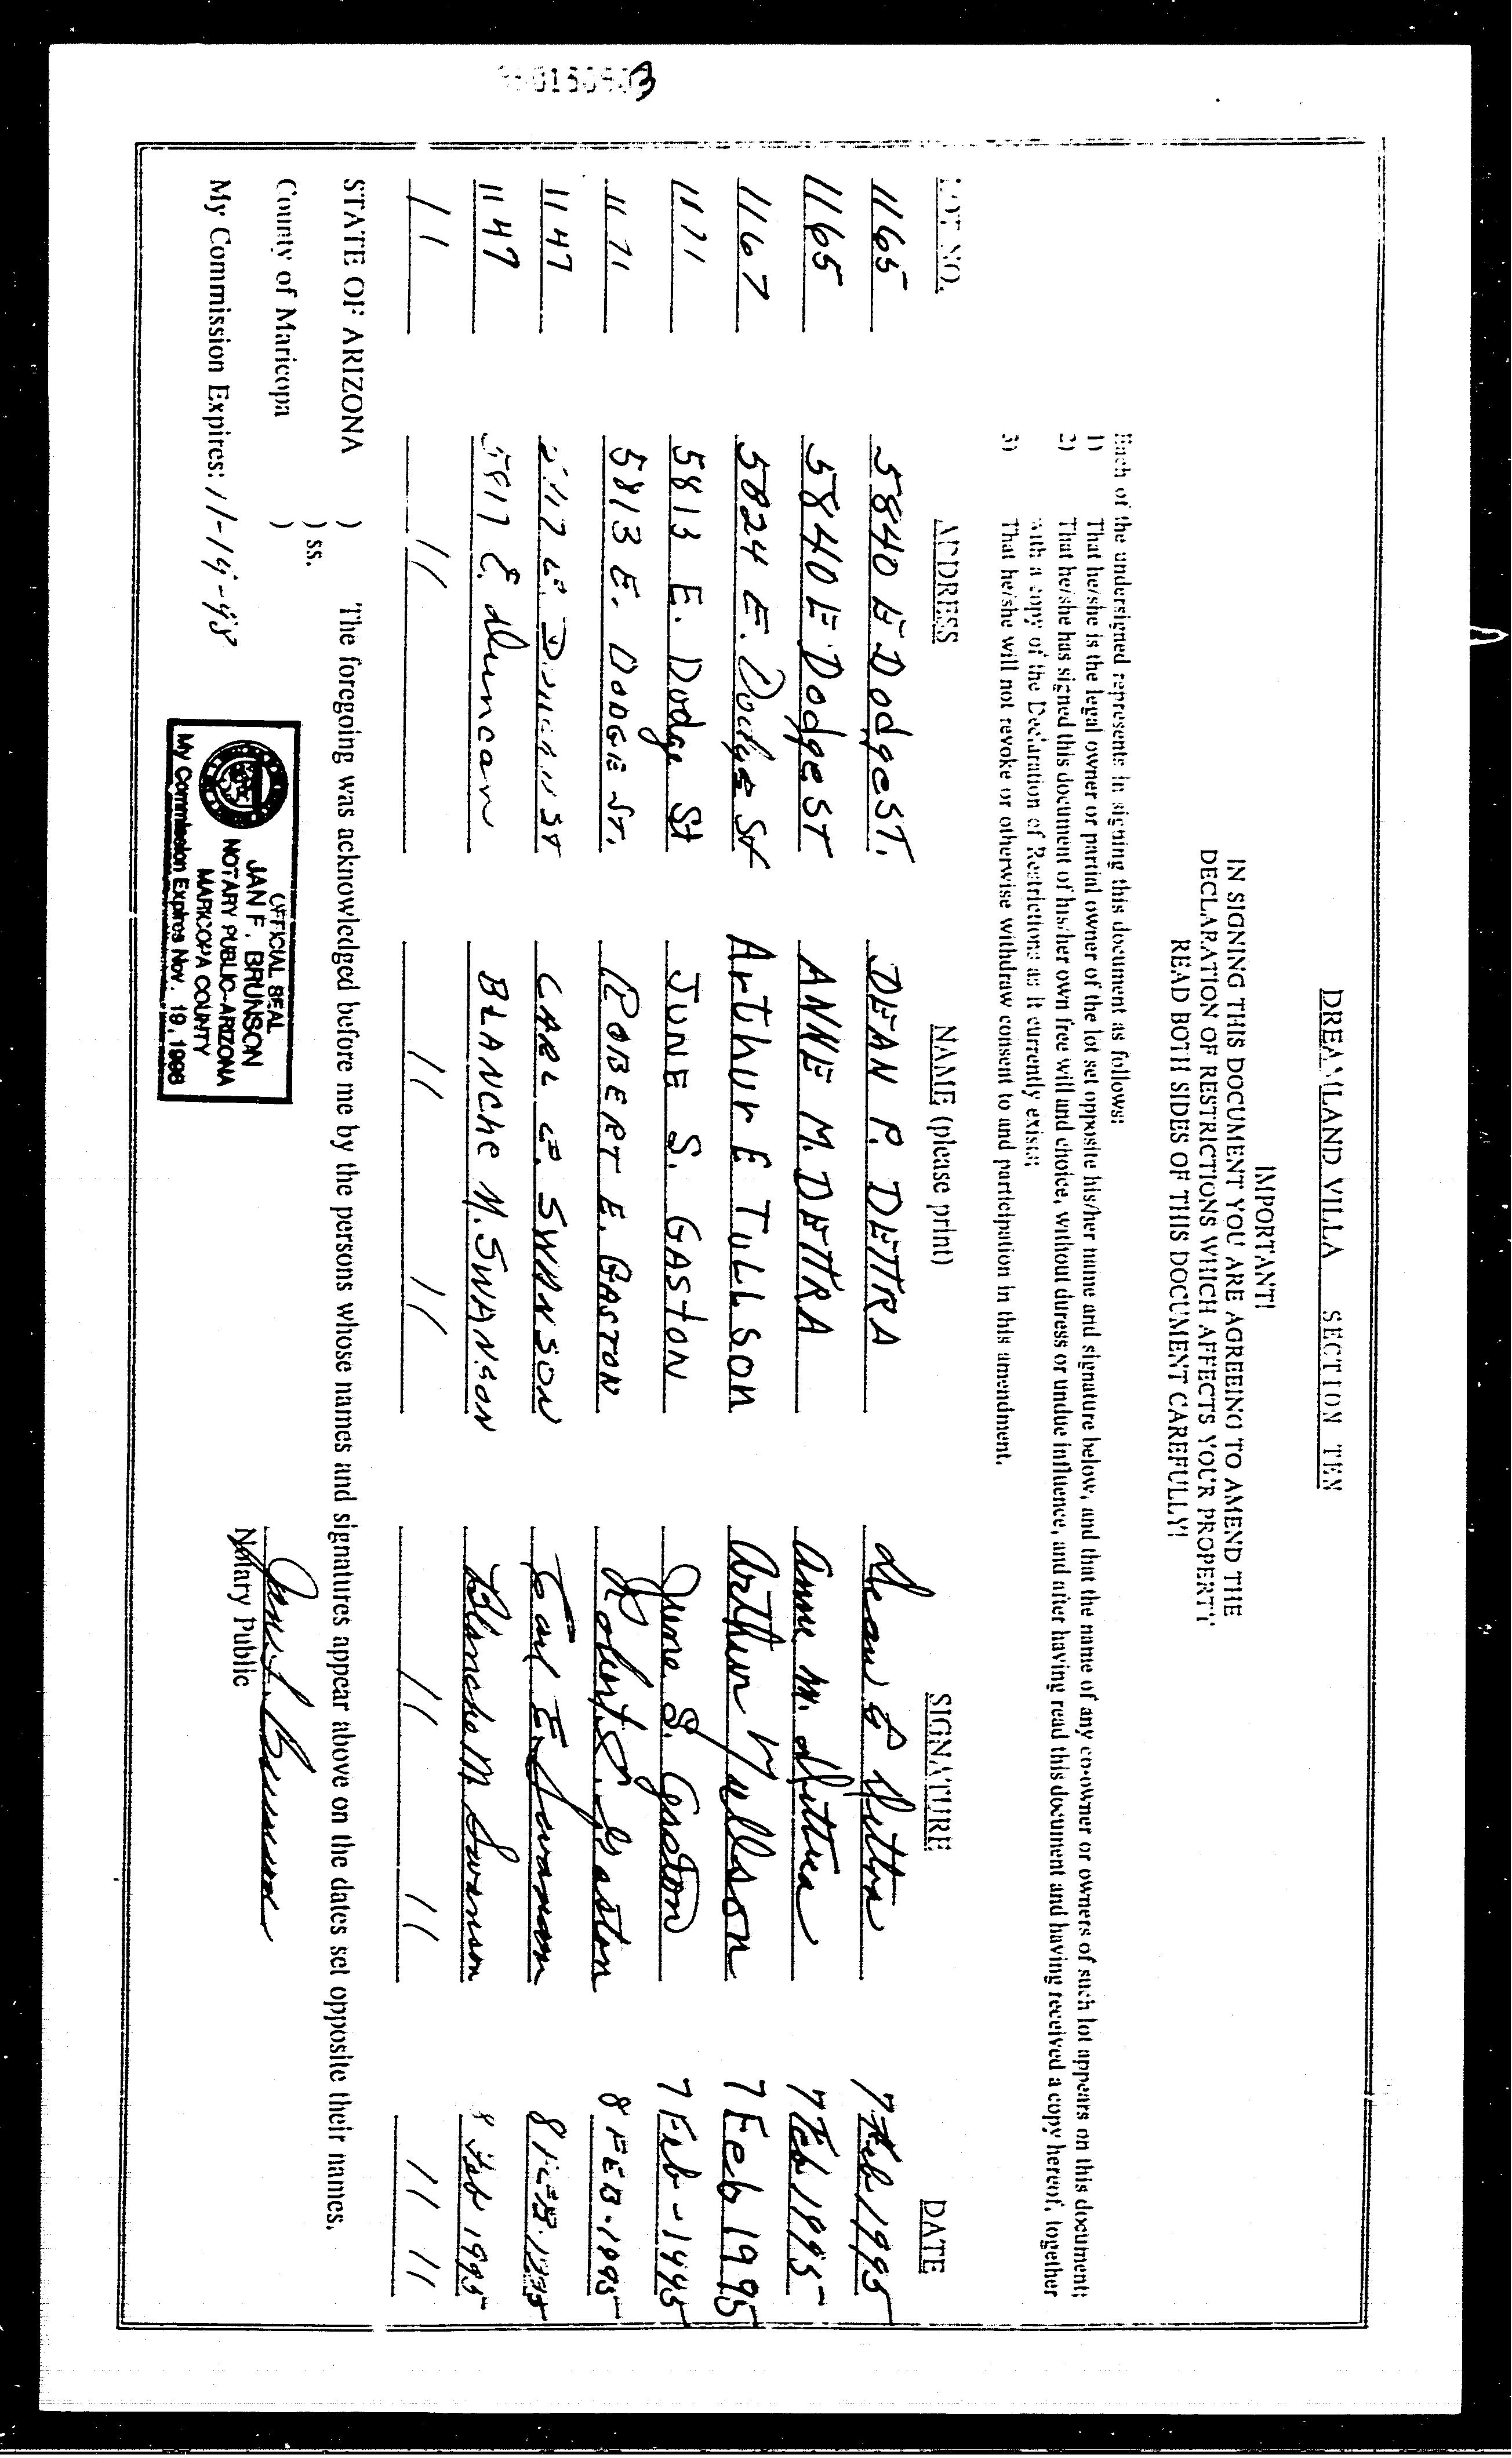 DREAMLAND VILLA SECTION TEN
IMPORTANT!
IN SIGNING THIS DOCUMENT YOU ARE AGREEING TO AMEND THE
DECLARATION OF RESTRICTIONS WHICH AFFECTS YOUR PROPERTY
READ BOTH SIDES OF THIS DOCUMENT CAREFULLY!
Each of the undersigned represents in signing this document as follows:
1) That he/she is the legal owner or partial owner of the lot set opposite his/her name and signature below, and that the name of any co-owner or owners of such lot appears on this document;
2) That he/she has signed this document of his/her own free will and choice, without duress or undue influence, and after having read this document and having received a copy hereof, together
with a copy of the Declaration of Restrictions as it currently exists;
3) That he/she will not revoke or otherwise withdraw consent to and participation in this amendment.
LOT NO. ADDRESS NAME (please print) SIGNATURE DATE
1165 5840 E Dodge ST. DEAN P. DETTRA Dean P Dettra 7 Feb 1995
1165 5840 E Dodge ST ANNE M. DETTRA Anne M. Dettra 7 Feb 1995
1167 5824 E. Dodge St Arthur E TULLSon Arthur Tullson 7 Feb 1995
1171 5813 E. Dodge St JUNE S. GASTON June S. Gaston 7 Feb - 1995
1171 5813 E. DODGE ST. ROBERT E. GASTON Robert E. Gaston 8 FEB. 1995
1147 E. ST CARL E. SWANSON Carl E. Swanson 8 FEB. 1995
1147 5817 E. Duncan BLANCHE M. SWANSON Blanche M Swanson 8 Feb 1995
11 11 11 11 11 11 11 11
STATE OF ARIZONA )
) ss. The foregoing was acknowledged before me by the persons whose names and signatures appear above on the dates set opposite their names.
County of Maricopa )
My Commission Expires: 11-19-98
OFFICIAL SEAL
JAN F. BRUNSON
NOTARY PUBLIC-ARIZONA
MARICOPA COUNTY
My Commission Expires Nov. 19, 1998
Jan F. Brunson
Notary Public